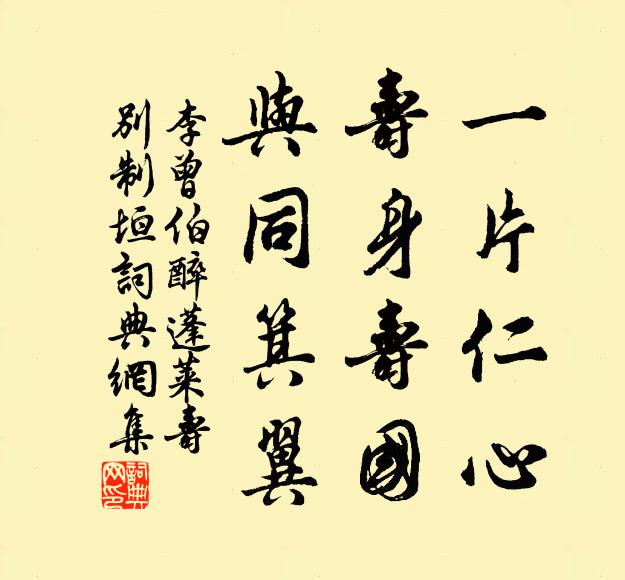 一片仁心
壽身壽國
與同箕翼
李曾伯醉蓬萊壽
別制垣詞典網集
詞典网印